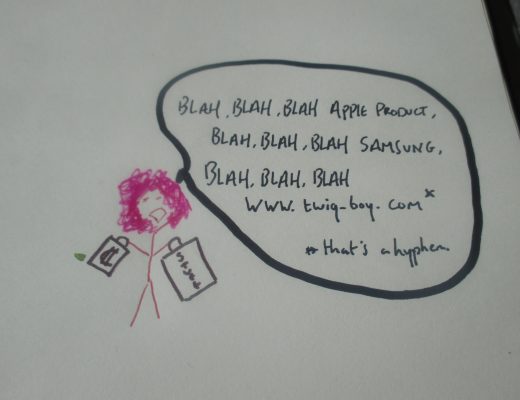 BLAH, BLAH, BLAH APPLE PRODUCT,
BLAH, BLAH, BLAH SAMSUNG,
BLAH, BLAH, BLAH
www.twig-boy.com*
* that's a hyphen.